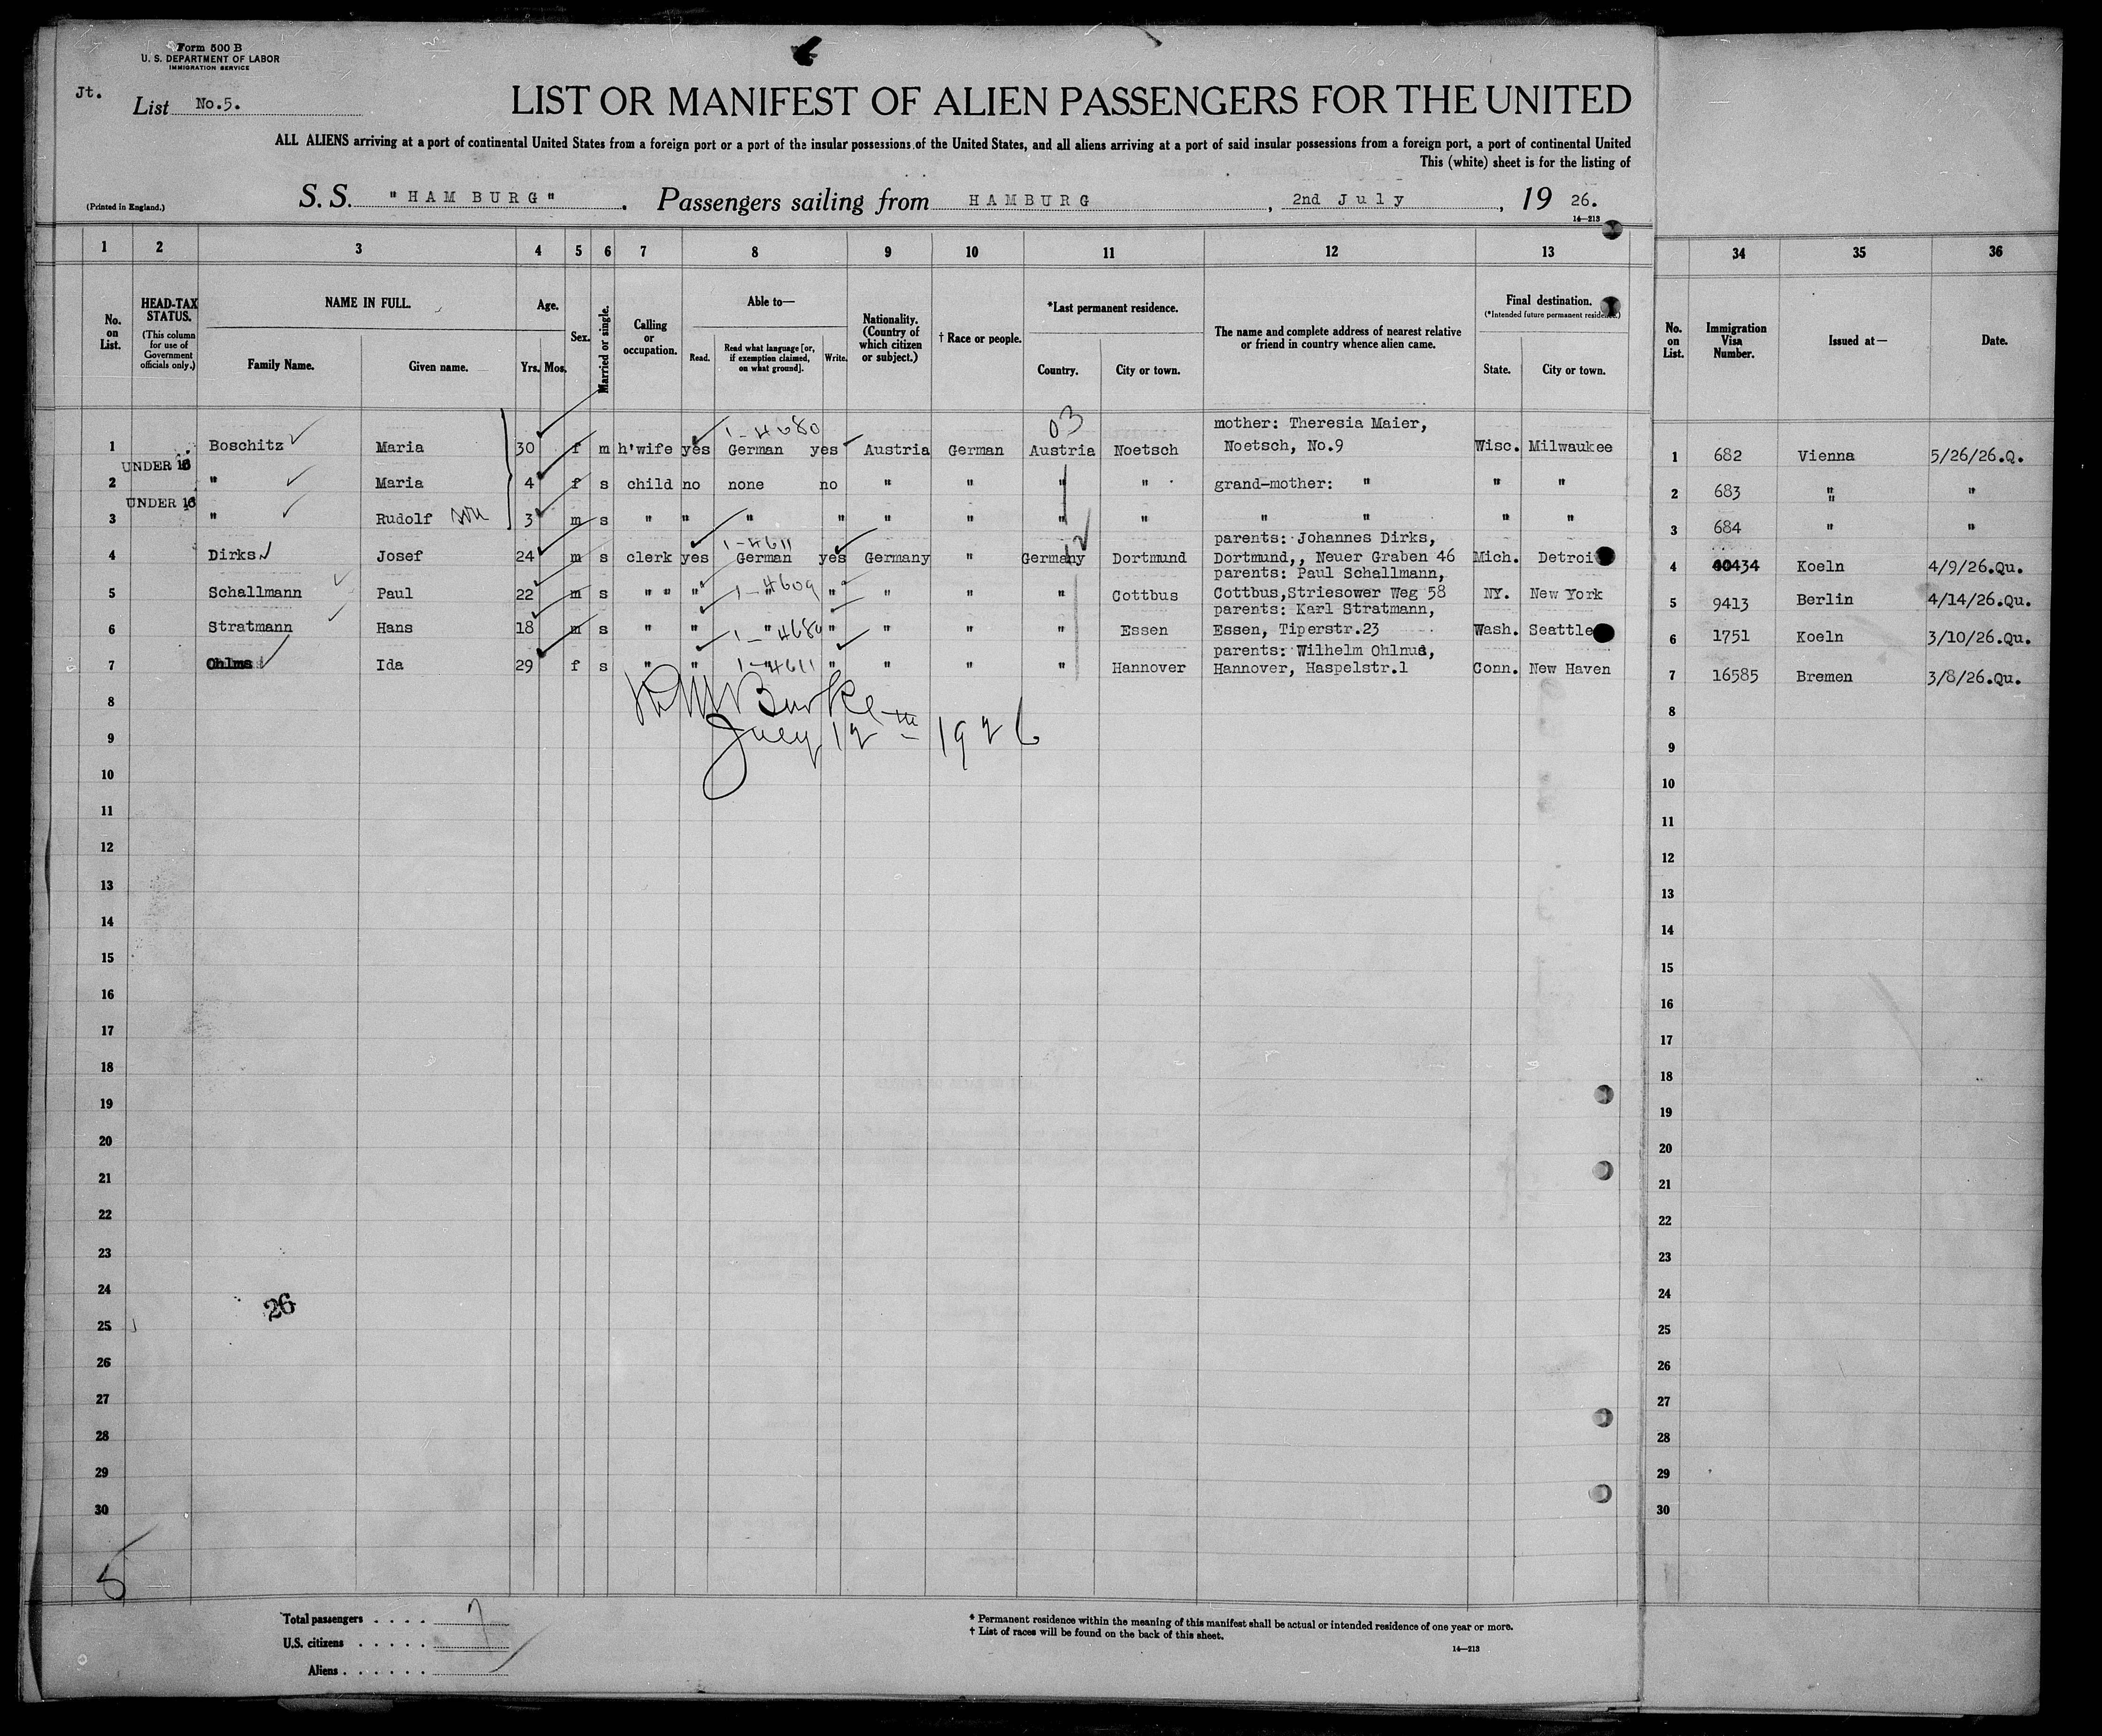 Form 500 B
U. S. DEPARTMENT OF LABOR
IMMIGRATION SERVICE
Jt.
List No.5.
LIST OR MANIFEST OF ALIEN PASSENGERS FOR THE UNITED
ALL ALIENS arriving at a port of continental United States from a foreign port or a port of the insular possessions of the United States, and all aliens arriving at a port of said insular possessions from a foreign port, a port of continental United
This (white) sheet is for the listing of
(Printed in England.)
S. S. "HAMBURG". Passengers sailing from HAMBURG, 2nd July, 19 26.
14—213
1 2 3 4 5 6 7 8 9 10 11 12 13 34 35 36
No. on List.
HEAD-TAX STATUS.
(This column for use of Government officials only.)
NAME IN FULL.
Family Name. Given name.
Age.
Yrs. Mos.
Sex.
Married or single.
Calling or occupation.
Able to—
Read. Read what language [or, if exemption claimed, on what ground]. Write.
Nationality. (Country of which citizen or subject.)
† Race or people.
*Last permanent residence.
Country. City or town.
The name and complete address of nearest relative or friend in country whence alien came.
Final destination.
(*Intended future permanent residence.)
State. City or town.
No. on List.
Immigration Visa Number.
Issued at—
Date.
03
1-4680
mother: Theresia Maier,
1 Boschitz Maria 30 f m h'wife yes German yes Austria German Austria Noetsch Noetsch, No.9 Wisc. Milwaukee 1 682 Vienna 5/26/26.Q.
UNDER 16
2 " Maria 4 f s child no none no " " " " grand-mother: " " " 2 683 " "
UNDER 16
3 " Rudolf son 3 m s " " " " " " " " " " " " 3 684 " "
1-4611
parents: Johannes Dirks,
4 Dirks Josef 24 m s clerk yes German yes Germany " Germany Dortmund Dortmund,, Neuer Graben 46 Mich. Detroi 4 40434 Koeln 4/9/26.Qu.
parents: Paul Schallmann,
1-4609
5 Schallmann Paul 22 m s " " " " " " " " Cottbus Cottbus,Striesower Weg 58 NY. New York 5 9413 Berlin 4/14/26.Qu.
parents: Karl Stratmann,
1-4680
6 Stratmann Hans 18 m s " " " " " " " Essen Essen, Tiperstr.23 Wash. Seattle 6 1751 Koeln 3/10/26.Qu.
parents: Wilhelm Ohlnus,
1-4611
7 Ida 29 f s " " " " " " " Hannover Hannover, Haspelstr.1 Conn. New Haven 7 16585 Bremen 3/8/26.Qu.
Burke
July 12th 1926
8 8
9 9
10 10
11 11
12 12
13 13
14 14
15 15
16 16
17 17
18 18
19 19
20 20
21 21
22 22
23 23
24 24
26
25 25
26 26
27 27
28 28
29 29
30 30
5
Total passengers . . . . 7
U.S. citizens . . . . .
Aliens . . . . . .
* Permanent residence within the meaning of this manifest shall be actual or intended residence of one year or more.
† List of races will be found on the back of this sheet.
14—213